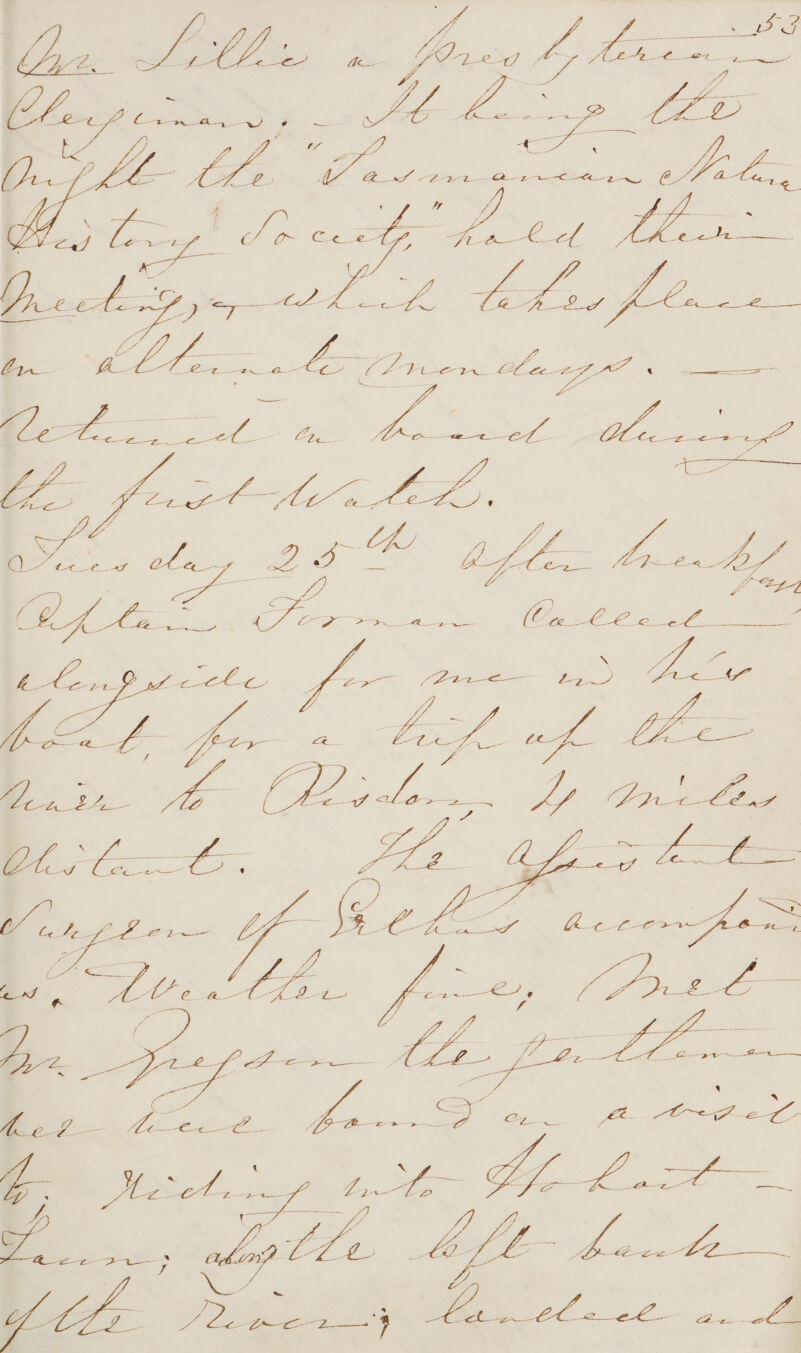 53
Mr. Lillie a Presbyterian
Clergiman. - It being the
Night the "Tasmanian Natura
History Society," hold their
Meeting, & which takes place
on alternate Mondays. —
Returned on board during
the first Watch.
Tuesday 25th After breakfast
Captain Forman Called
alongside for me in his
boat, for a trip up the
river to Risdon, 4 Miles
distant. The Assistant
Surgeon of Erebus accompani
us. Weather fine, Met
Mr. Gregson the gentleman
we were bound on a visit
to; Riding into Hobart -
Town; along the left bank
of the River; landed and